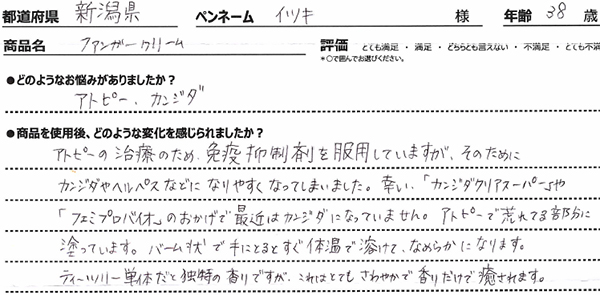 都道府県 新潟県 ペンネーム イツキ 様 年齢 38 歳
商品名 ファンガークリーム 評価 とても満足 ・ 満足 ・ どちらとも言えない ・ 不満足 ・ とても不満
*○で囲んでお選びください。
●どのようなお悩みがありましたか?
アトピー、カンジダ
●商品を使用後、どのような変化を感じられましたか?
アトピーの治療のため、免疫抑制剤を服用していますが、そのために
カンジダやヘルペスなどになりやすくなってしまいました。幸い、「カンジダクリアスーパー5」や
「フェミプロバイオ」のおかげで最近はカンジダになっていません。アトピーで荒れてる部分に
塗っています。バーム状で手にとるとすぐ体温で溶けて、なめらかになります。
ティーツリー単体だと独特の香りですが、これはとてもさわやかで香りだけで癒されます。